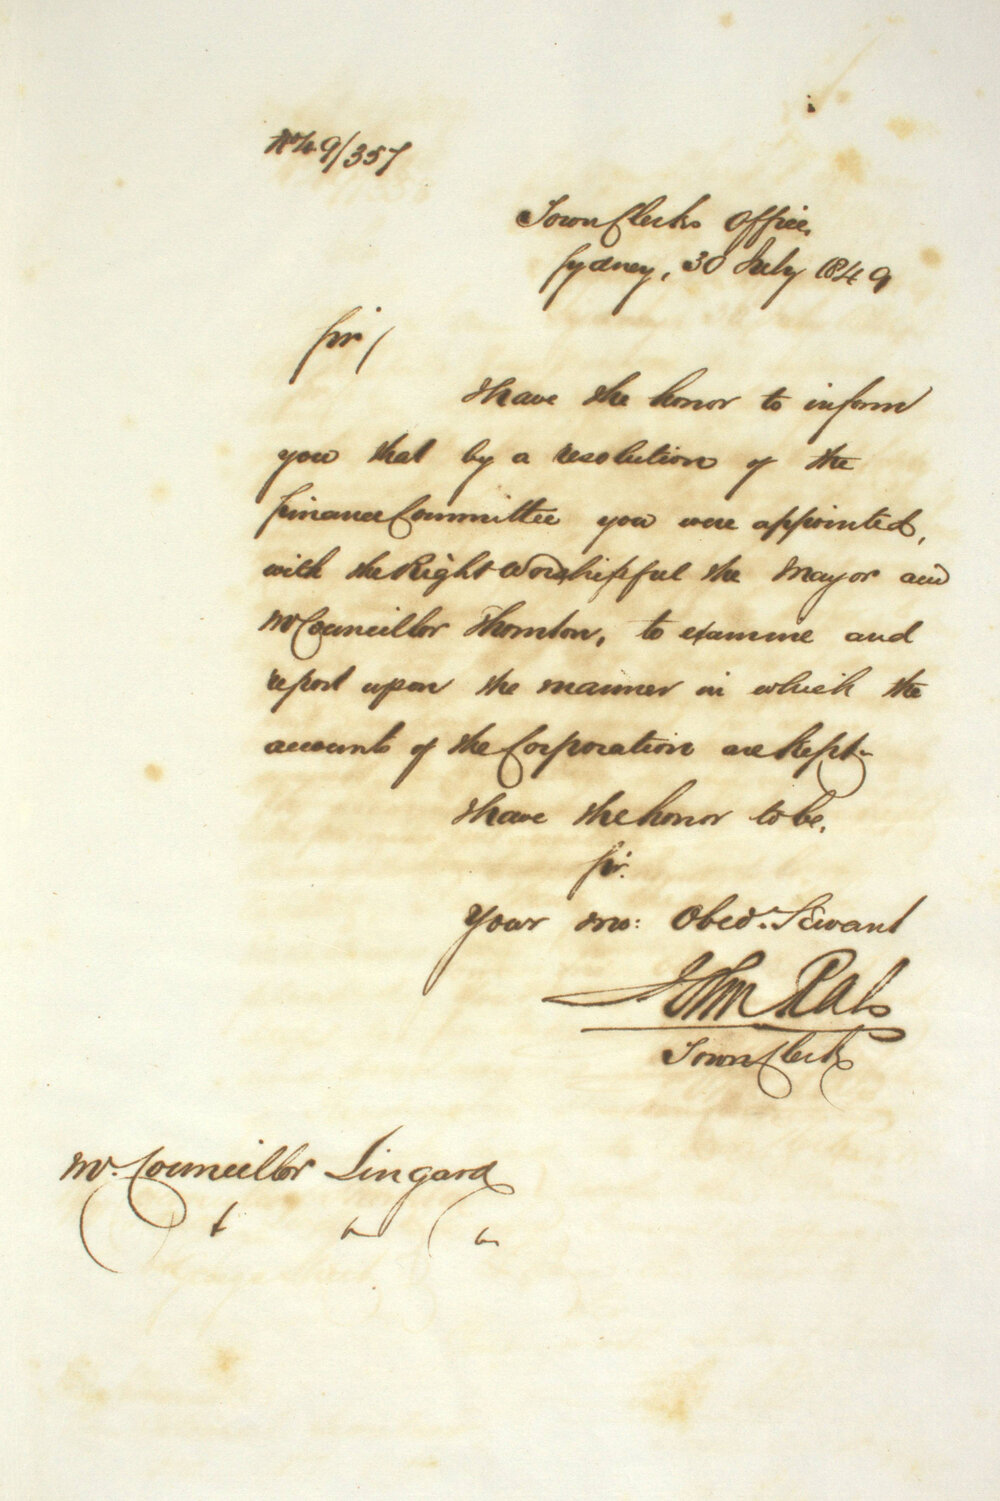 No 49/357
Town Clerks Office,
Sydney, 30 July 1849
Sir/
I have the honor to inform
you that by a resolution of the
Finance Committee you were appointed,
with the Right Worshipful the Mayor and
Mr Councillor Thornton, to examine and
report upon the manner in which the
accounts of the Corporation are kept.
I have the honor to be,
Sir.
Your mo: Obed. Servant
John Rae
Town Clerk
Mr. Councillor Lingard